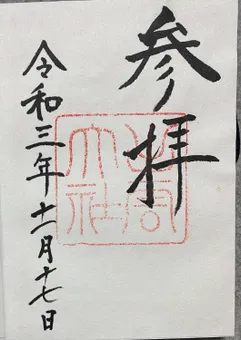 参拝
令和三年十一月十七日
大社